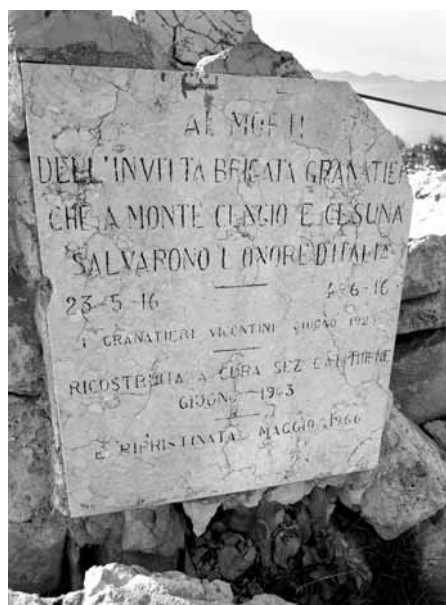 AI MORTI
DELL'INVITTA BRIGATA GRANATIERI
CHE A MONTE CENGIO E CESUNA
SALVARONO L'ONORE D'ITALIA
23-5-16 4-6-16
I GRANATIERI VICENTINI GIUGNO
RICOSTRUITA A CURA SEZ
GIUGNO 1943
E RIPRISTINATA MAGGIO 1966